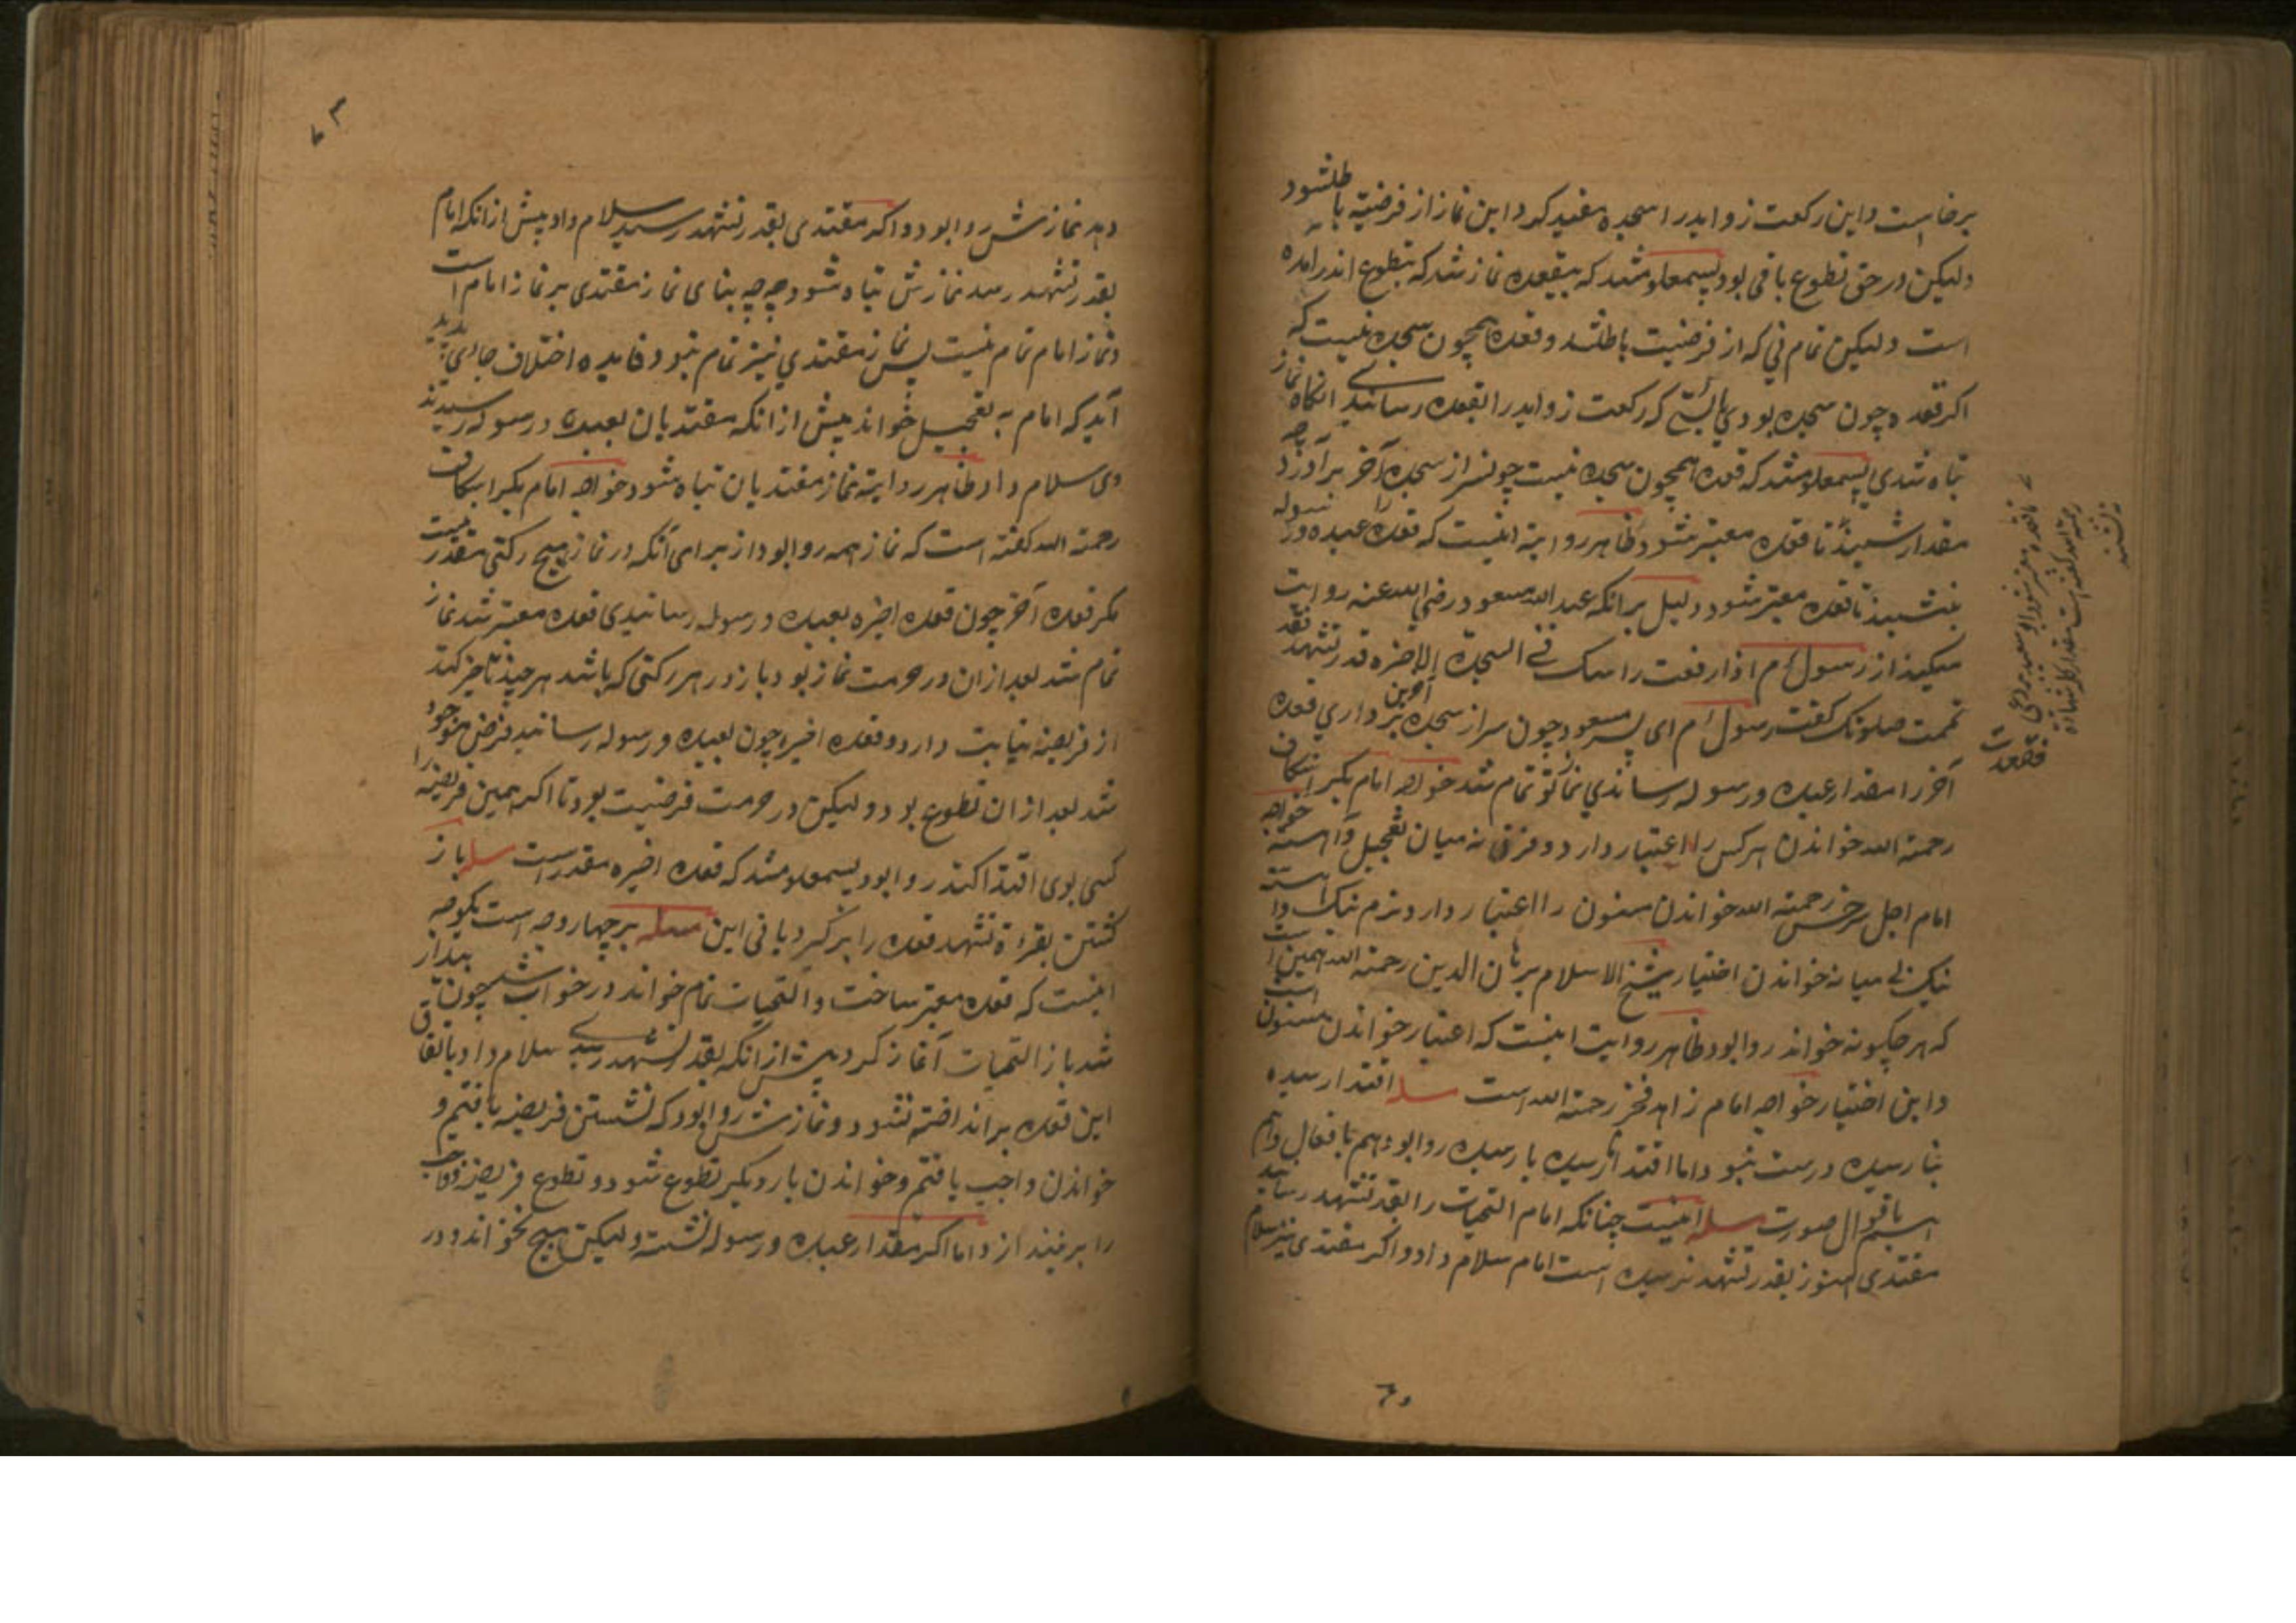 برخاست و این رکعت زواید را سجده مقید کرد این نماز از فرضیة باطل شود
ولیکن در حق تطوع باقی بود پس معلوم شد که بیقعده نماز شد که بتطوع اندر آمده
است ولیکن تمام نی که از فرضیت باطل شد و قعده همچون سجده نیست که
اکر قعده چون سجده بودی بایستی که رکعت زواید را بقعده رسانیدی انکاه نماز
تباه شدی پس معلوم شد که قعده همچون سجده نیست چون سر از سجده آخر برآورد چه
مقدار شیند تا قعده معتبر شود ظاهر روایة اینست که قعده را عبده و رسوله
بنشیند تا قعده معتبر شود دلیل برانکه عبد الله مسعود رضی الله عنه روایت
میکند از رسول م اذا رفعت راسک فی السجدة الاخرة قدر تشهد فقد
تمت صلوتک کفت رسول م ای پسر مسعود چون سر از سجده آخرین برداری قعده
آخر را مقدار عبده و رسوله رساندی نماز تو تمام شد خواجه امام بکر اسکاف
رحمة الله خواندن هرکس را اعتبار دارد و فرق نه میان تعجیل و آهسته خواجه
امام اجل سرخسی رحمة الله خواندن مسنون را اعتبار دارد و نرم نیک و آهسته
نیک نی میانه خواندن اختیار شیخ الاسلام برهان الدین رحمة الله همین است
که هر چکونه خواند روا بود ظاهر روایت اینست که اعتبار خواندن مسنون است
و این اختیار خواجه امام زاهد فخر رحمة الله است مسله اقتدا رسیده
بنارسیده درست نبود اما اقتدا نارسیده بارسیده روا بود هم بافعال و هم
باقوال صورت مسله اینست چنانکه امام التحیات را بقدر تشهد رسانید
مقتدی هنوز بقدر تشهد نرسیده است امام سلام داد و اکر مقتدی نیز سلام
تا قعده معتبر شود ابو سعید بردعی
رحمة الله کفته است مقدار کلمه شهادت
دهد نمازش روا بود و اکر مقتدی بقدر تشهد رسید سلام داد پیش از انکه امام
بقدر تشهد رسد نمازش تباه شود چه چه بنای نماز مقتدی بر نماز امام است
و نماز امام تمام نیست پس نماز مقتدی نیز تمام نبود فایده اختلاف جای پدید
آید که امام به تعجیل خواند پیش از انکه مقتدیان بعبده و رسوله رسیدند
وی سلام داد ظاهر روایة نماز مقتدیان تباه شود خواجه امام بکر اسکاف
رحمة الله کفته است که نماز همه روا بود از برای آنکه در نماز هیچ رکنی مقدر نیست
مکر قعده آخر چون قعده اخیره بعبده و رسوله رسانیدی قعده معتبر شد نماز
تمام شد بعد ازان در حرمت نماز بود باز در هر رکنی که باشد هر چند تاخیر کند
از فریضه نیابت دارد و قعده اخیره چون بعبده و رسوله رسانید فرض موجود
شد بعد ازان تطوع بود و لیکن در حرمت فرضیت بود تا اکر همین فریضه را
کسی بوی اقتدا کند روا بود پس معلوم شد که قعده اخیره مقدر است مسله باز
کشتن بقراءة تشهد قعده را بر کیرد یا نی این مسله بر چهار وجه است یکوجه
اینست که قعده معتبر ساخت و التحیات تمام خواند در خواب شد چون بیدار
شد باز التحیات آغاز کرد پیش از انکه بقدر تشهد رسیدی سلام داد باتفاق
این قعده برانداخته نشود و نمازش روا بود که نشستن فریضه یافتیم و
خواندن واجب یافتیم و خواندن بار دیکر تطوع شود و تطوع فریضه و واجب
را بر نیندازد اما اکر مقدار عبده و رسوله نشست ولیکن هیچ نخواند و در